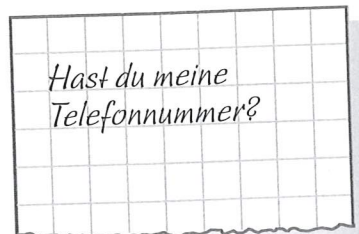 Hast du meine
Telefonnummer?